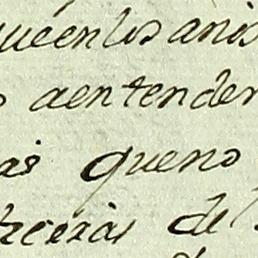 queenlos anis
aentender
as queno
terceras del